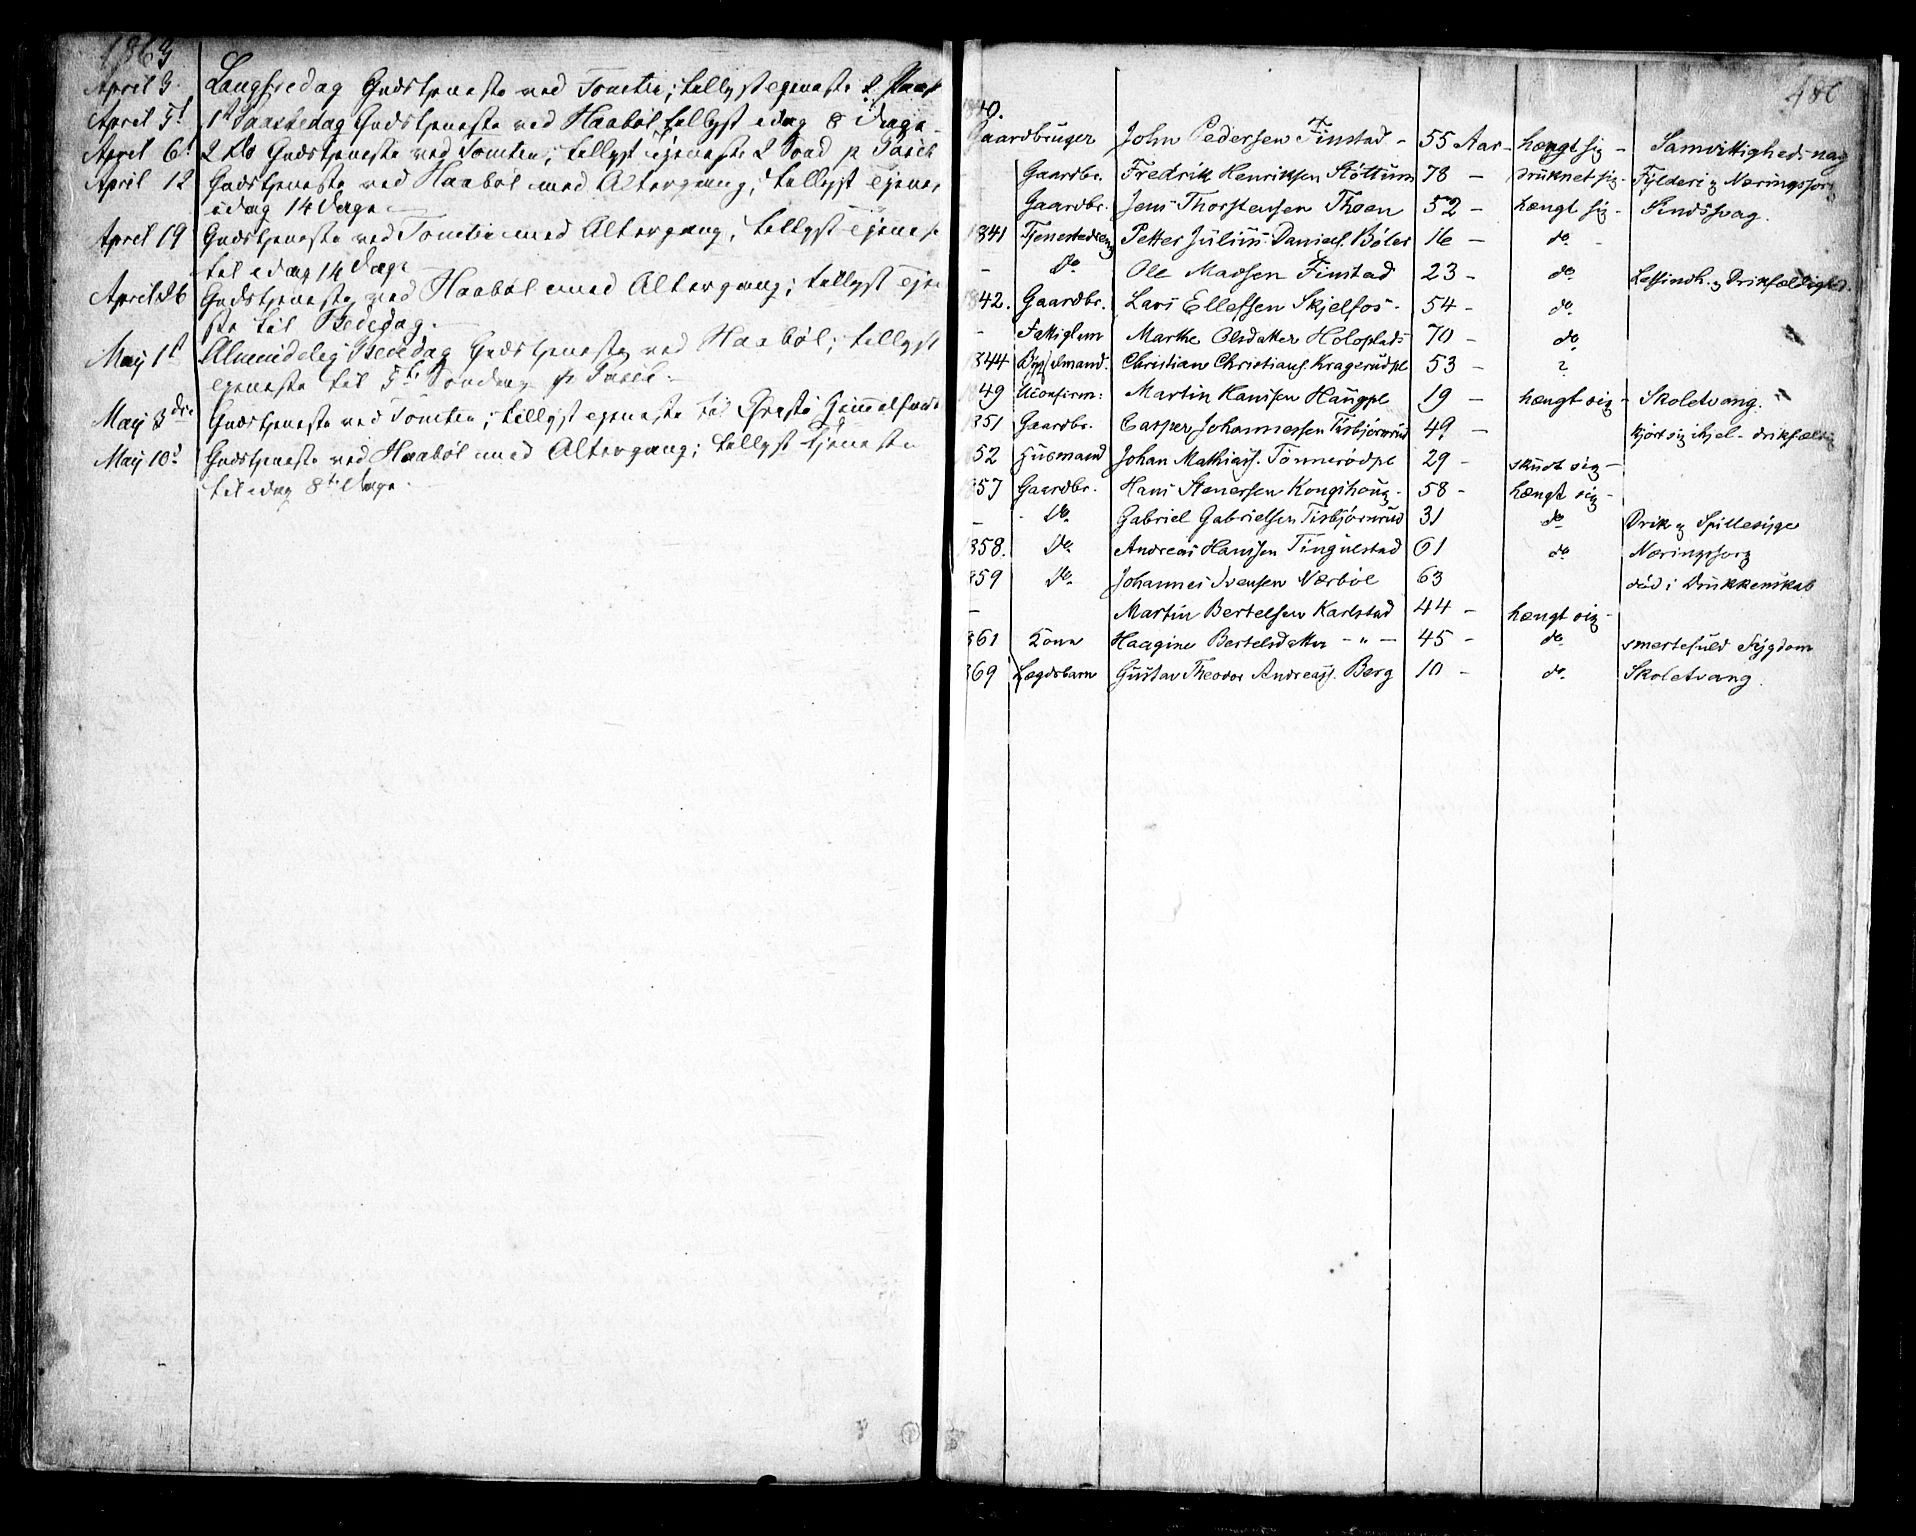 1863
April 3. Langfredag Gudstjeneste ved Tomter; tillyst Tjeneste 2 Paask
April 5t 1st Paaskedag Gudstjeneste ved Haabøl tillyst idag 8 Dage
April 6t 2 Do Gudstjeneste ved Tomter; tillyst Tjeneste 2 Sønd p Paask
April 12 Gudstjeneste ved Haabøl med Altergang, tillyst Tjenes
idag 14 Dage.
April 19 Gudstjeneste ved Tomter med Altergang; tillyst Tjenes
til idag 14 Dage
April 26 Gudstjeneste ved Haabøl med Altergang; tillyst Tjene
ste til Bededag.
May 1st Almindelig Bededag Gudstjeneste ved Haabøl; tillyst
Tjeneste til 5te Søndag p Paask.
May 3die Gudstjeneste ved Tomter; tillyst Tjeneste til Christi Himmelfart
May 10d Gudstjeneste ved Haabøl med Altergang; tillyst Tjeneste
til idag 8te Dage.
486
1840.
Gaardbruger John Pedersen Finstad - 55 Aar - hængt sig - Samvittighedsnag
Gaardbr. Fredrik Henriksen Støttum 78 - druknet sig - Fylderi og Næringssorg
Gaardbr. Jens Thorstensen Thoen 52 - hængt sig - Sindssvag.
1841 Tjenestedreng Petter Julius Daniels. Bøler 16 - do -
- Do Ole Madsen Finstad 23 - do Letsindh. og Drikfældighed.
1842. Gaardbr. Lars Ellefsen Skjelfos - 54 - do
- Fattiglem Marthe Olsdatter Holoplads 70 - do
1844 Christian Christians. Kragerudpl 53 - ?
1849 Uconfirm: Martin Hansen Haugpl 19 - hængt sig - Skoletvang.
1851 Gaardbr. Casper Johannessen Tisbjørnrud 49. - kjørt sig ihjel - drikfældig
52 Husmand Johan Mathiass. Tønnerødpl 29 - skudt sig -
1857 Gaardbr. Hans Stenersen Kongshoug - 58 - hængt sig -
- Do. Gabriel Gabrielsen Tisbjørnrud 31 do Drik og Spillesyge
1858. Do. Andreas Hansen Tingulstad 61 do Næringssorg
1859 Do. Johannes Ivensen Nærbøl 63 død i Drukkenskab
- Martin Bertelsen Karlstad 44 - hængt sig -
1861 Kone Haagine Bertelsdatter - " - 45 - do smertefuld Sygdom
1869 Lægdsbarn Gustav Theodor Andreass. Berg 10 - do Skoletvang.